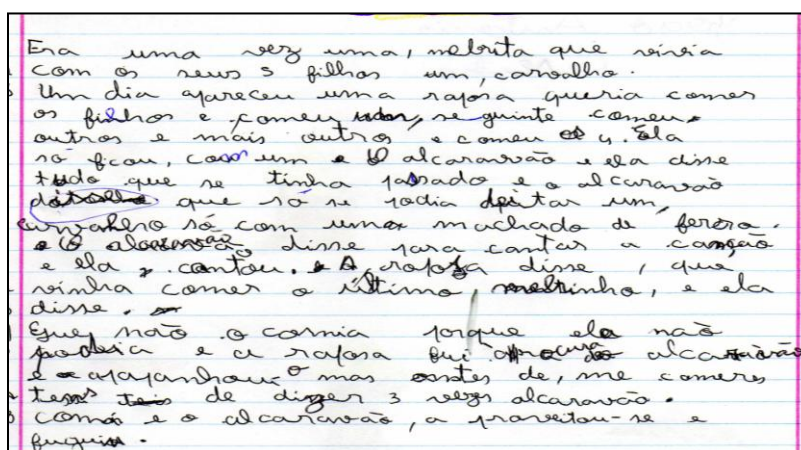 Era uma vez uma, melrita que vivia
com os seus 5 filhos um, carvalho.
Um dia apareceu uma raposa queria comer
os filhos e comeu, se guinte comeu,
outros e mais outros e comeu os 4. Ela
só ficou, com um e O alcaravão e ela disse
tudo que se tinha passado e o alcaravão
que só se podia deitar um,
carvalho só com uma machado de ferro.
e O alcaravão disse para cantar a canção
e ela, cantou. A raposa disse, que,
vinha comer o último, melrinho, e ela
disse.
Que, não o comia porque ela não
podia e a raposa foi a procura do alcaravão
e apanhou-o mas antes de, me comeres
tens de dizer 3 vezes alcaravão.
comi e o alcaravão, a proveitou-se e
fugiu.